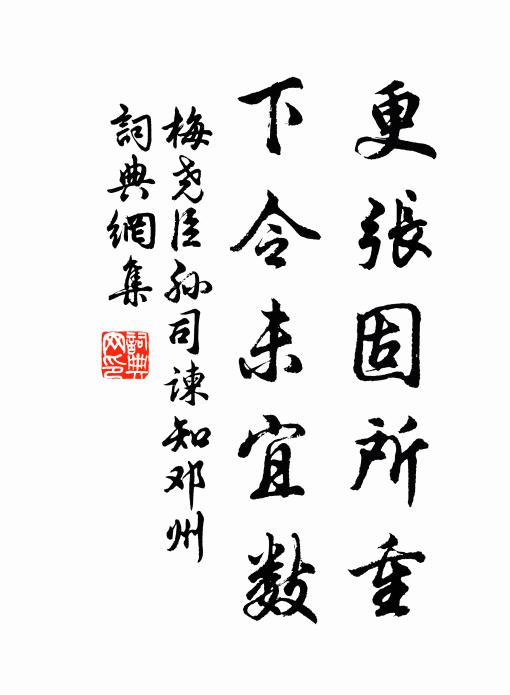 更張固所重
下令未宜數
梅尧臣孙司諫知邓州
詞典網集
詞典網印